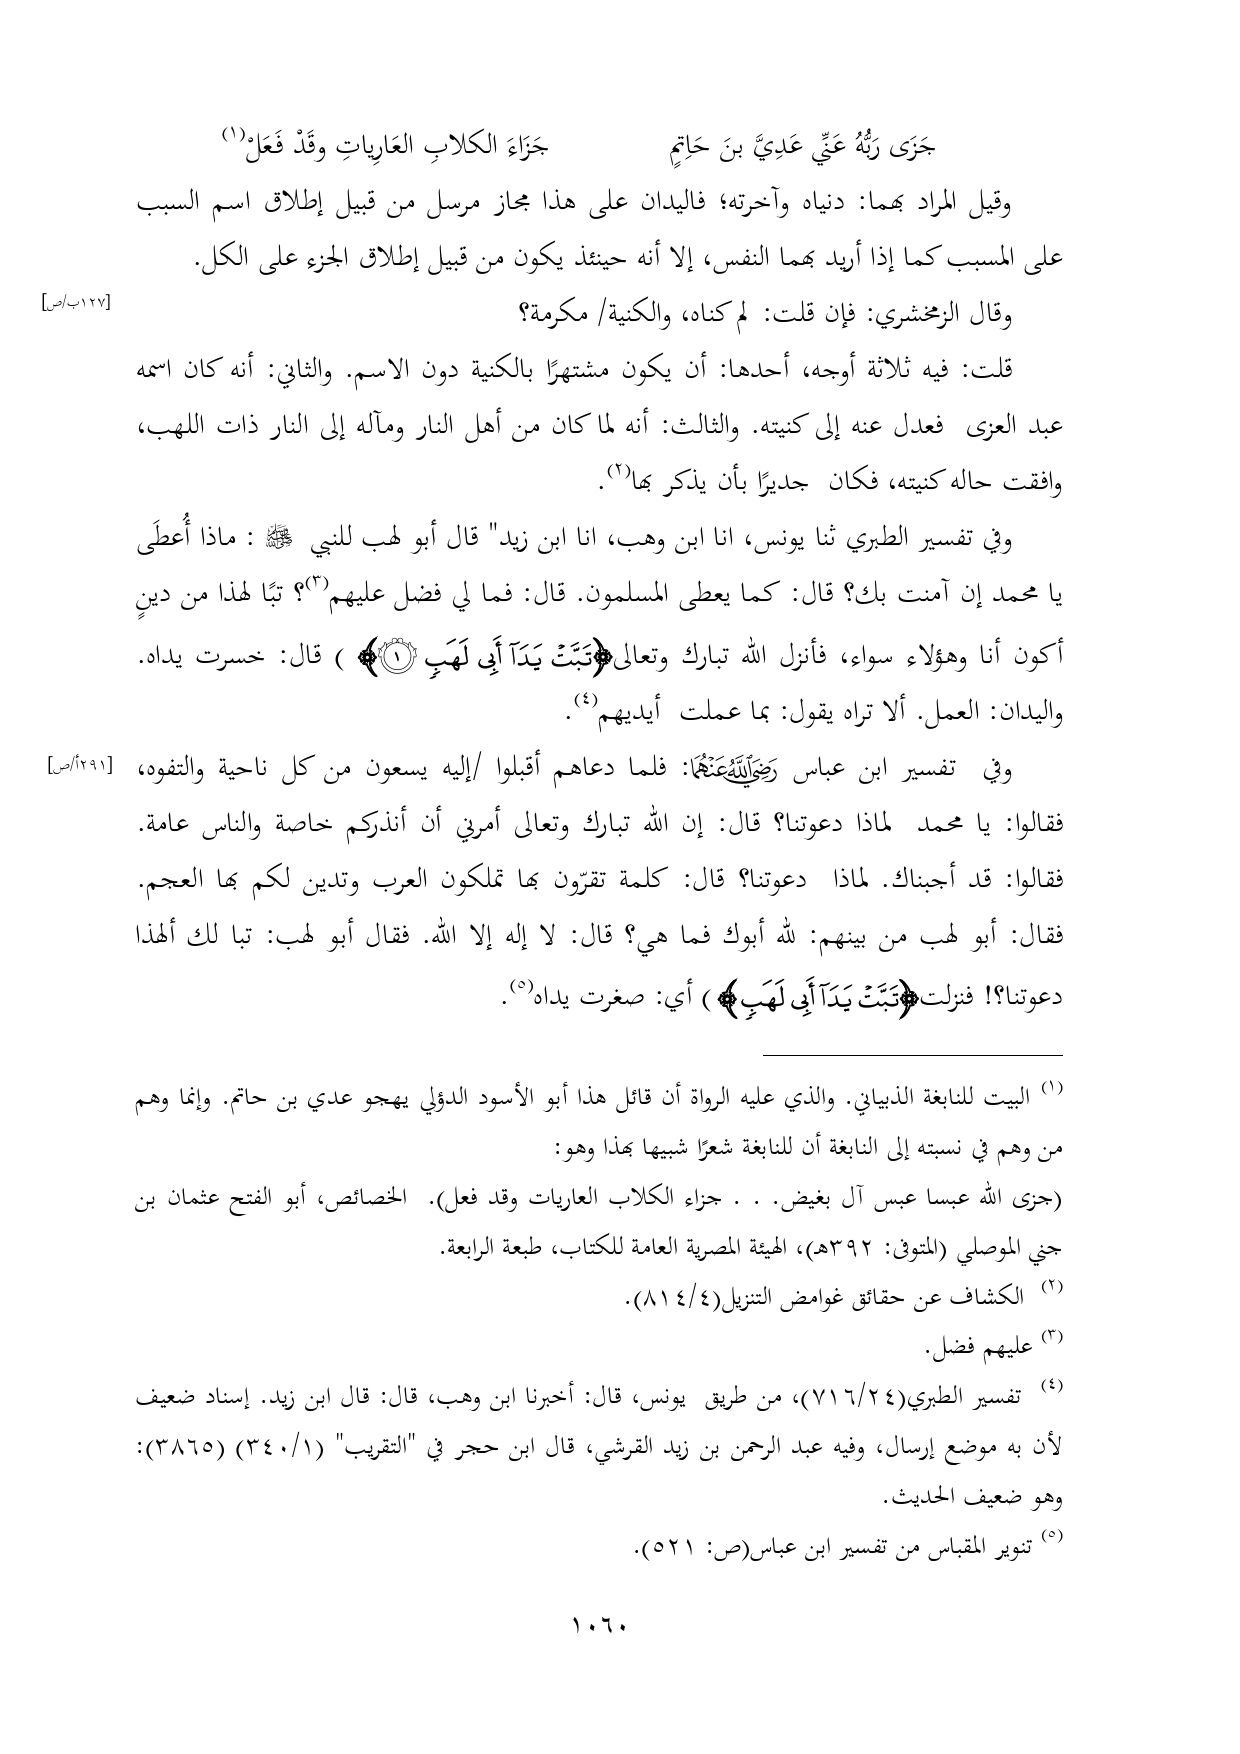 جَزَى رَبُّهُ عَنِّي عَدِيَّ بنَ حَاتِمٍ جَزَاءَ الكلابِ العَارِياتِ وقَدْ فَعَلْ(١)
وقيل المراد بهما: دنياه وآخرته؛ فاليدان على هذا مجاز مرسل من قبيل إطلاق اسم السبب
على المسبب كما إذا أريد بهما النفس، إلا أنه حينئذ يكون من قبيل إطلاق الجزء على الكل.
وقال الزمخشري: فإن قلت: لم كناه، والكنية/ مكرمة؟ [١٢٧ب/ص]
قلت: فيه ثلاثة أوجه، أحدها: أن يكون مشتهرًا بالكنية دون الاسم. والثاني: أنه كان اسمه
عبد العزى فعدل عنه إلى كنيته. والثالث: أنه لما كان من أهل النار ومآله إلى النار ذات اللهب،
وافقت حاله كنيته، فكان جديرًا بأن يذكر بها(٢).
وفي تفسير الطبري ثنا يونس، انا ابن وهب، انا ابن زيد" قال أبو لهب للنبي ﷺ : ماذا أُعطَى
يا محمد إن آمنت بك؟ قال: كما يعطى المسلمون. قال: فما لي فضل عليهم(٣)؟ تبًا لهذا من دينٍ
أكون أنا وهؤلاء سواء، فأنزل الله تبارك وتعالى﴿تَبَّتۡ يَدَآ أَبِي لَهَبٖ ۝١﴾ ) قال: خسرت يداه.
واليدان: العمل. ألا تراه يقول: بما عملت أيديهم(٤).
وفي تفسير ابن عباس رَضِيَ ٱللَّهُ عَنْهُمَا: فلما دعاهم أقبلوا /إليه يسعون من كل ناحية والتفوه، [٢٩١أ/ص]
فقالوا: يا محمد لماذا دعوتنا؟ قال: إن الله تبارك وتعالى أمرني أن أنذركم خاصة والناس عامة.
فقالوا: قد أجبناك. لماذا دعوتنا؟ قال: كلمة تقرّون بها تملكون العرب وتدين لكم بها العجم.
فقال: أبو لهب من بينهم: لله أبوك فما هي؟ قال: لا إله إلا الله. فقال أبو لهب: تبا لك ألهذا
دعوتنا؟! فنزلت﴿تَبَّتۡ يَدَآ أَبِي لَهَبٖ﴾ ) أي: صغرت يداه(٥).
(١) البيت للنابغة الذبياني. والذي عليه الرواة أن قائل هذا أبو الأسود الدؤلي يهجو عدي بن حاتم. وإنما وهم
من وهم في نسبته إلى النابغة أن للنابغة شعرًا شبيها بهذا وهو:
(جزى الله عبسا عبس آل بغيض. . . جزاء الكلاب العاريات وقد فعل). الخصائص، أبو الفتح عثمان بن
جني الموصلي (المتوفى: ٣٩٢هـ)، الهيئة المصرية العامة للكتاب، طبعة الرابعة.
(٢) الكشاف عن حقائق غوامض التنزيل(٨١٤/٤).
(٣) عليهم فضل.
(٤) تفسير الطبري(٧١٦/٢٤)، من طريق يونس، قال: أخبرنا ابن وهب، قال: قال ابن زيد. إسناد ضعيف
لأن به موضع إرسال، وفيه عبد الرحمن بن زيد القرشي، قال ابن حجر في "التقريب" (٣٤٠/١) (٣٨٦٥):
وهو ضعيف الحديث.
(٥) تنوير المقباس من تفسير ابن عباس(ص: ٥٢١).
١٠٦٠